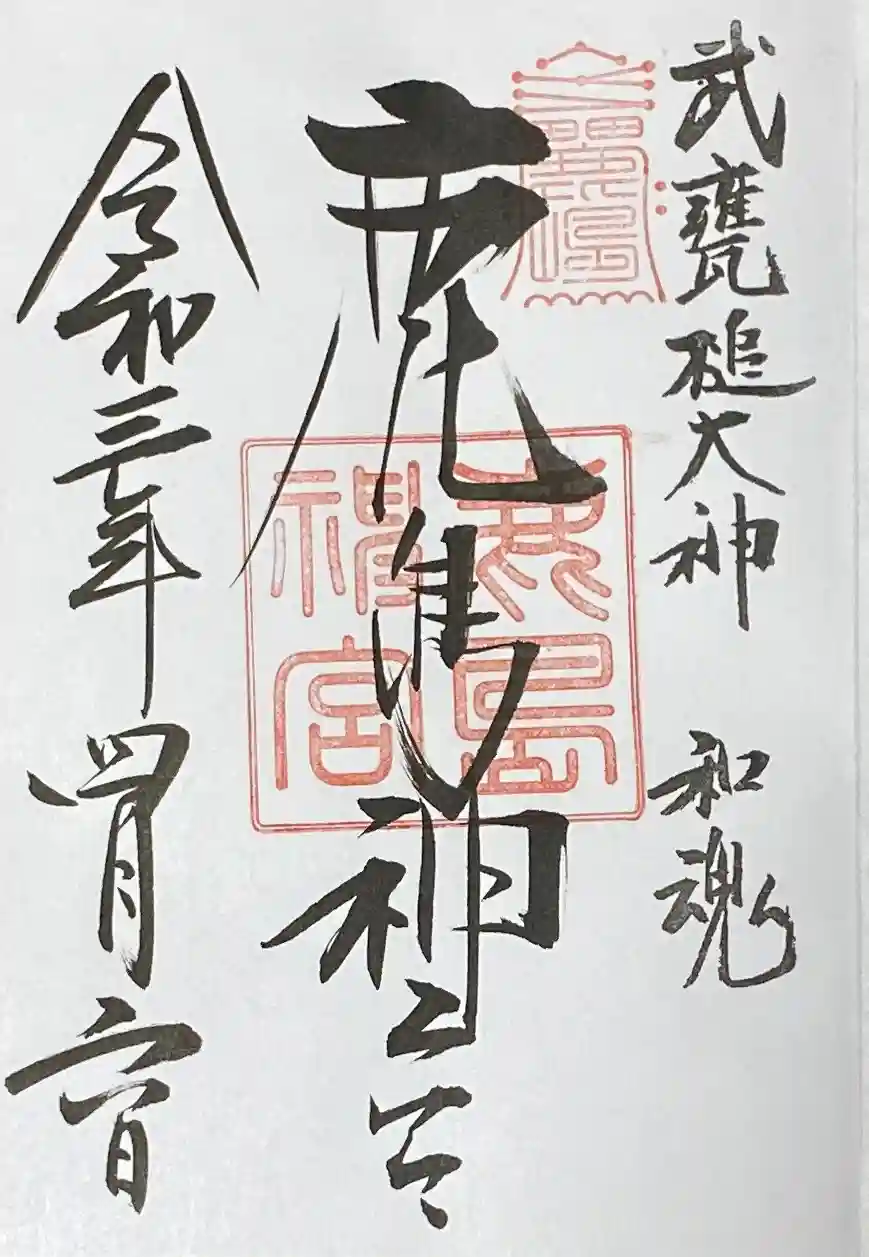 武甕槌大神 和魂
鹿島神宮
鹿島神宮
令和三年四月六日